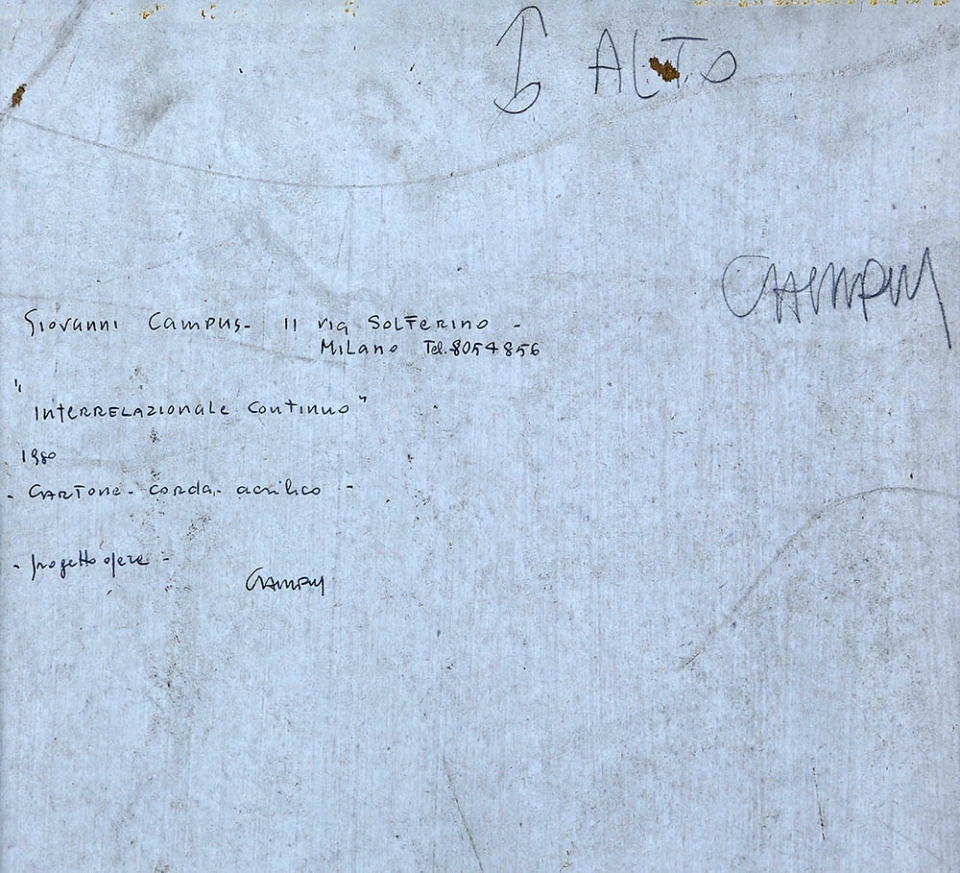 ALTO
CAMPUS
Giovanni Campus- 11 via Solferino -
Milano Tel. 8054856
"Interrelazionale Continuo"
1980
- Cartone- corda,- acrilico -
- progetto opera -
Campus